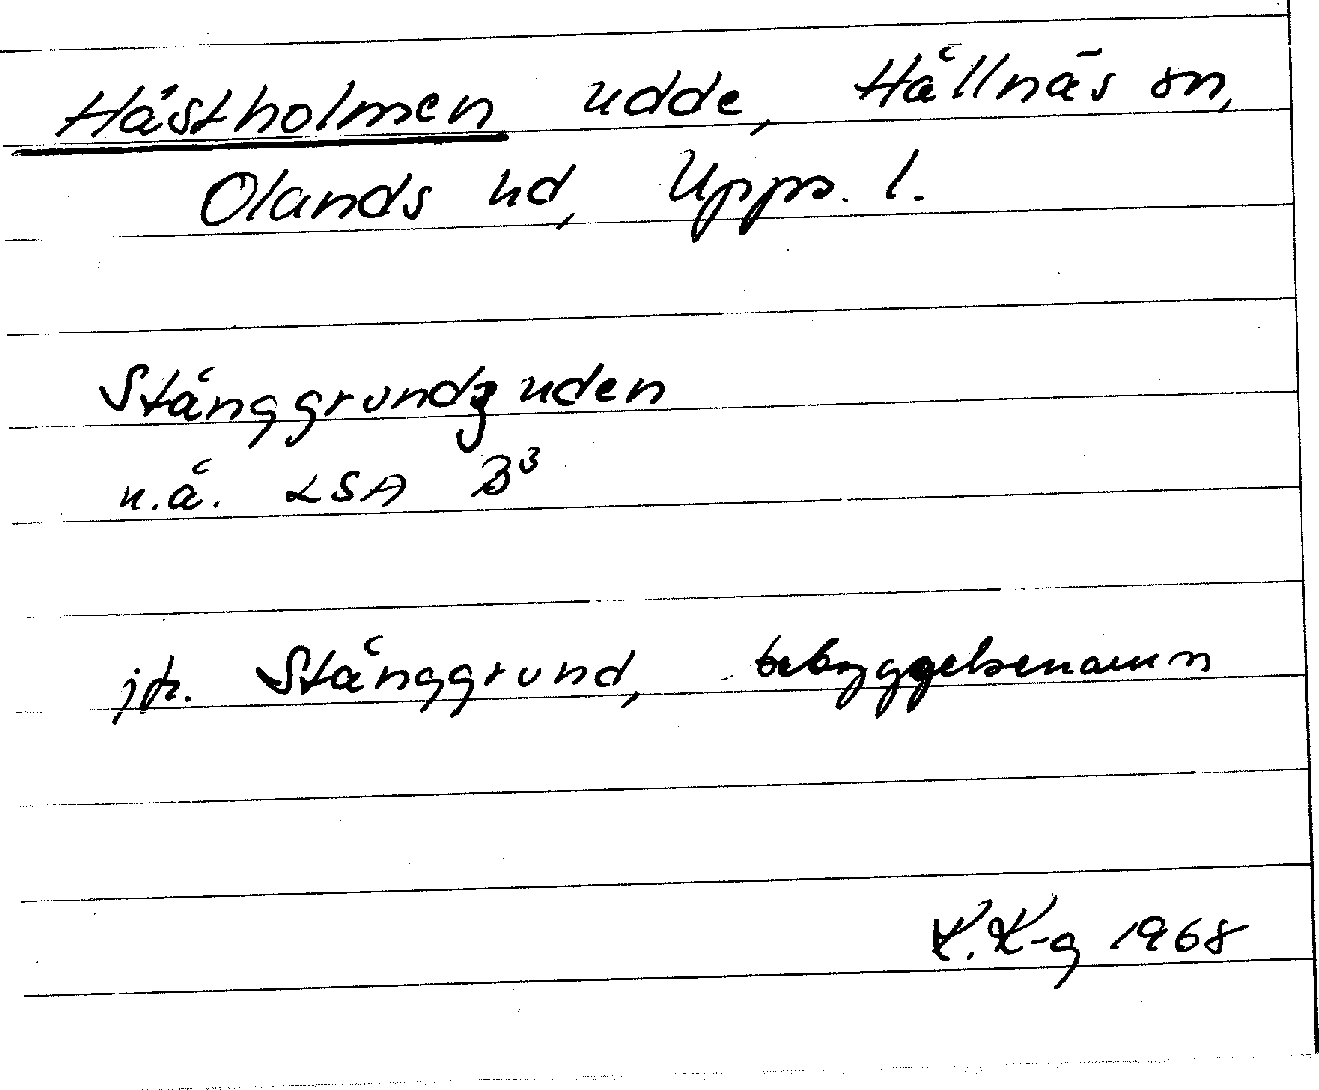 Hästholmen udde, Hållnäs sn,
Olands hd, Upps. l.
Stånggrundzuden
u.å. LSA B³
jfr. Stånggrund, bebyggelsenamn
K.K-g 1968